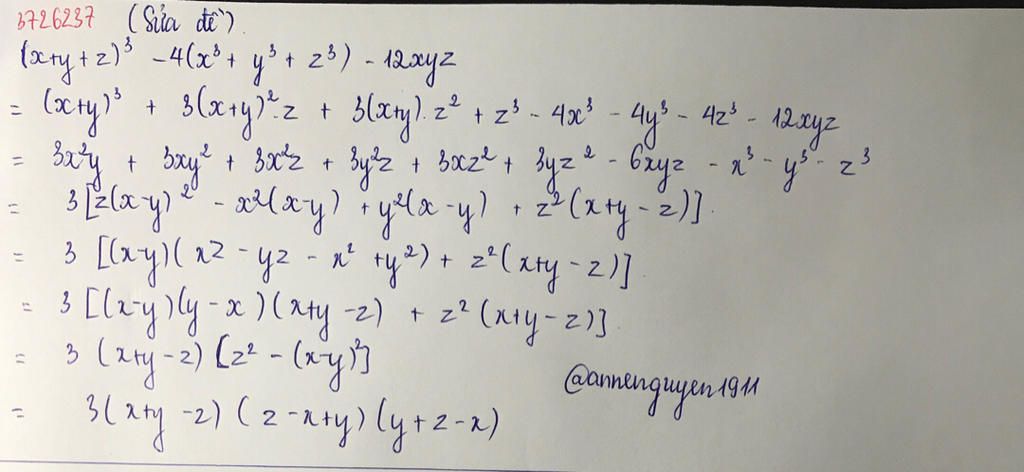 3726237 (Sửa đề)
(x+y+z)³ - 4(x³ + y³ + z³) - 12xyz
= (x+y)³ + 3(x+y)².z + 3(x+y).z² + z³ - 4x³ - 4y³ - 4z³ - 12xyz
= 3x²y + 3xy² + 3x²z + 3y²z + 3xz² + 3yz² - 6xyz - x³ - y³ - z³
= 3[z(x-y)² - x²(x-y) + y²(x-y) + z²(x+y-z)].
= 3 [(x-y)(xz - yz - x² + y²) + z²(x+y-z)].
= 3 [(x-y)(y-x)(x+y-z) + z²(x+y-z)].
= 3 (x+y-z) [z² - (x-y)²]
@annenguyen1911
= 3(x+y-z) (z-x+y) (y+z-x)